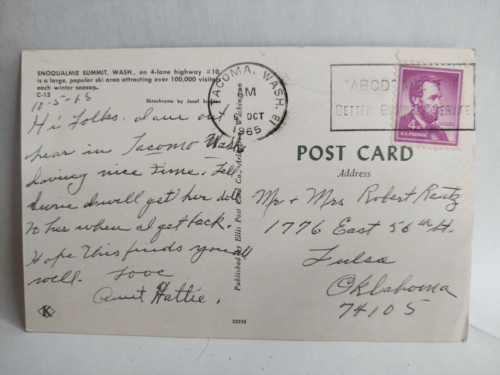 SNOQUALMIE SUMMIT, WASH., on 4-lane highway #10
is a large, popular ski area attracting over 100,000 visitors
each winter season.
C-13
Ektachrome by Josef
10-5-65
Hi Folks. I am out
hear in Tacomo Wash
having nice time. Tell
I will get her doll
to her when I get back.
Hope This finds you all
well. Love
Aunt Hattie.
K
Published by Ellis Post Card Co., Arlington, Washington
TACOMA, WASH. 81
M
OCT
1965
"ABCD"
BETTER BUSINESS SERVICE
U.S. POSTAGE
POST CARD
Address
Mr & Mrs Robert
1776 East 56th St.
Tulsa
Oklahoma
74105